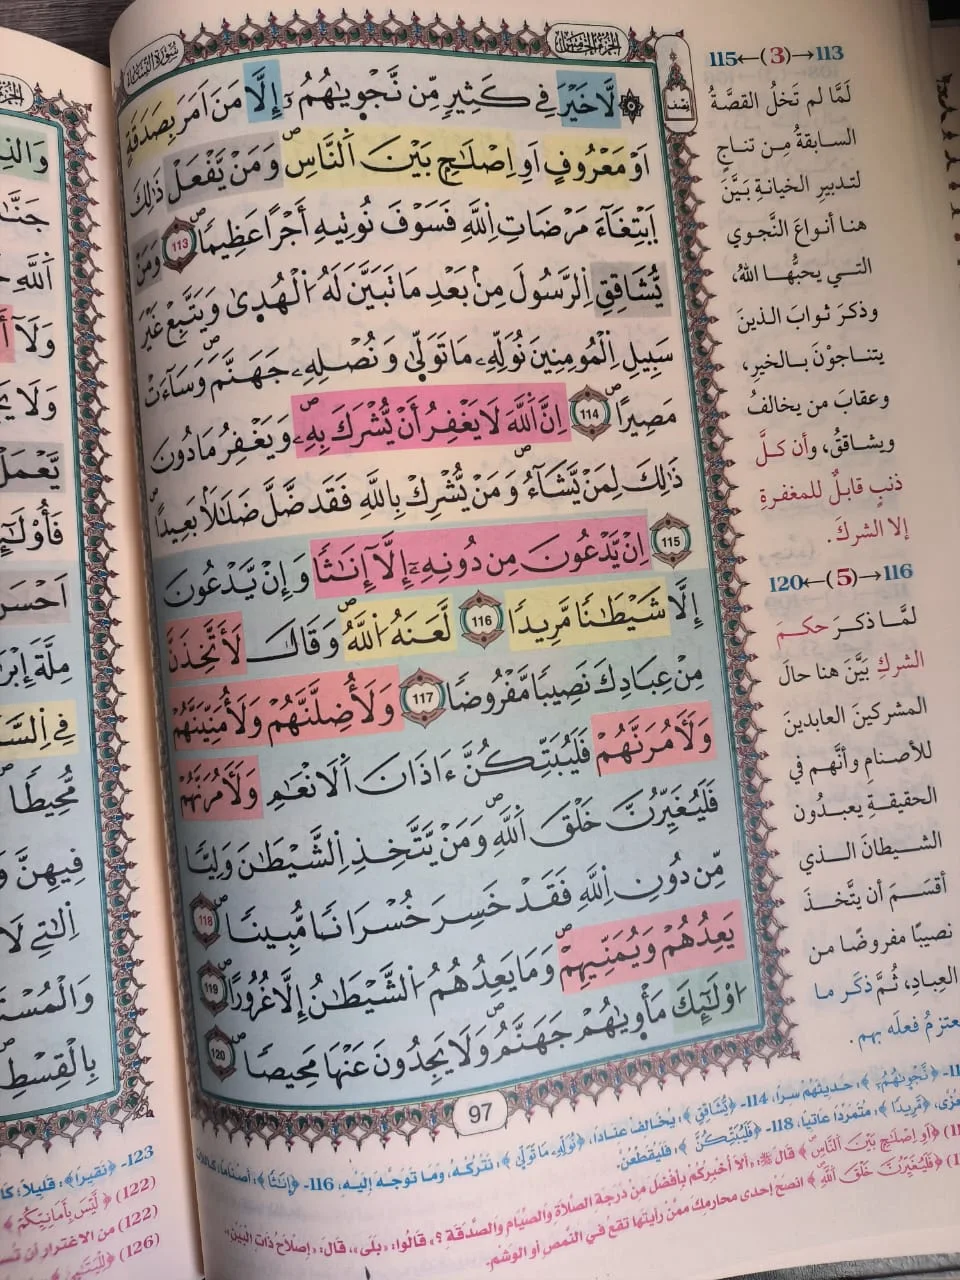 سُورَةُ النِّسَاءِ
الجزء الخامس
نِصْف
لَّا خَيْرَ فِے كَثِيرٖ مِّن نَّجْوٜيٰهُمُۥٓ إِلَّا مَنَ اَمَرَ بِصَدَقَةٍ
اَوْ مَعْرُوفٍ اَوِ اِصْلَٰحِۢ بَيْنَ اَ۬لنَّاسِۖ وَمَنْ يَّفْعَلْ ذَٰلِكَ
اَ۪بْتِغَآءَ مَرْضَاتِ اِ۬للَّهِ فَسَوْفَ نُوتِيهِ أَجْراً عَظِيماًۖ 113 وَمَنْ
يُّشَاقِقِ اِ۬لرَّسُولَ مِنۢ بَعْدِ مَا تَبَيَّنَ لَهُ اُ۬لْهُدٜيٰ وَيَتَّبِعْ غَيْرَ
سَبِيلِ اِ۬لْمُومِنِينَ نُوَلِّهِۦ مَا تَوَلّٜيٰ وَنُصْلِهِۦ جَهَنَّمَۖ وَسَآءَتْ
مَصِيراًۖ 114 اِنَّ اَ۬للَّهَ لَا يَغْفِرُ أَنْ يُّشْرَكَ بِهِۦۖ وَيَغْفِرُ مَا دُونَ
ذَٰلِكَ لِمَنْ يَّشَآءُۖ وَمَنْ يُّشْرِكْ بِاللَّهِ فَقَد ضَّلَّ ضَلَٰلاَۢ بَعِيداًۖ
115 اِنْ يَّدْعُونَ مِن دُونِهِۦٓ إِلَّآ إِنَٰثاً وَإِنْ يَّدْعُونَ
إِلَّا شَيْطَٰناً مَّرِيداً 116 لَّعَنَهُ اُ۬للَّهُۖ وَقَالَ لَأَتَّخِذَنَّ
مِنْ عِبَادِكَ نَصِيباً مَّفْرُوضاً 117 وَلَأُضِلَّنَّهُمْ وَلَأُمَنِّيَنَّهُمْ
وَلَأٓمُرَنَّهُمْ فَلَيُبَتِّكُنَّ ءَاذَانَ اَ۬لَانْعَٰمِ وَلَأٓمُرَنَّهُمْ
فَلَيُغَيِّرُنَّ خَلْقَ اَ۬للَّهِۖ وَمَنْ يَّتَّخِذِ اِ۬لشَّيْطَٰنَ وَلِيّاً
مِّن دُونِ اِ۬للَّهِ فَقَدْ خَسِرَ خُسْرَاناً مُّبِيناًۖ 118
يَعِدُهُمْ وَيُمَنِّيهِمْۖ وَمَا يَعِدُهُمُ اُ۬لشَّيْطَٰنُ إِلَّا غُرُوراًۖ 119
اُوْلَٰٓئِكَ مَأْوٜيٰهُمْ جَهَنَّمُۖ وَلَا يَجِدُونَ عَنْهَا مَحِيصاًۖ 120
97
113→(3)←115
لَمَّا لم تَخلُ القصَّةُ
السابقةُ مِن تناجٍ
لتدبيرِ الخيانةِ بَيَّنَ
هنا أنواعَ النَّجوي
التي يحبُّها اللهُ،
وذكرَ ثوابَ الذينَ
يتناجوْنَ بالخيرِ،
وعقابَ من يخالفُ
ويشاققُ، وأن كلَّ
ذنبٍ قابلٌ للمغفرةِ
إلا الشركَ.
116→(5)←120
لمَّا ذكرَ حكمَ
الشركِ بَيَّنَ هنا حالَ
المشركينَ العابدينَ
للأصنامِ وأنَّهم في
الحقيقةِ يعبدُون
الشيطانَ الذي
أقسَمَ أن يتَّخذَ
نصيبًا مفروضًا من
العِبادِ، ثُمَّ ذكَر ما
يعتزمُ فعلَه بهم.
﴿نَّجْوٜيٰهُمُۥ﴾: حديثِهم سرًّا، 114- ﴿يُّشَاقِقِ﴾: يخالفْ عنادًا، ﴿نُوَلِّهِۦ مَا تَوَلّٜيٰ﴾: نتركْهُ، وما توجَّه إليه، 116- ﴿إِنَٰثاً﴾: أصنامًا، كاللات
﴿مَّرِيداً﴾: متمردًا عاتيًا، 118- ﴿فَلَيُبَتِّكُنَّ﴾: فليقطعُنَّ.
﴿أَوِ اِصْلَٰحِۢ بَيْنَ اَ۬لنَّاسِ﴾ قال ﷺ: «ألا أخبركم بأفضل من درجة الصلاة والصيام والصدقة؟» قالوا: «بلى»، قال: «إصلاح ذات البين»
﴿فَلَيُغَيِّرُنَّ خَلْقَ اَ۬للَّهِ﴾ انصح إحدى محارمك ممن رأيتها تقع في النمص أو الوشم.
123- ﴿نَقِيراً﴾: قليلاً،
(122) ﴿لَّيْسَ بِأَمَانِيِّكُمْ﴾
(122) من الاغترار أن
(126)